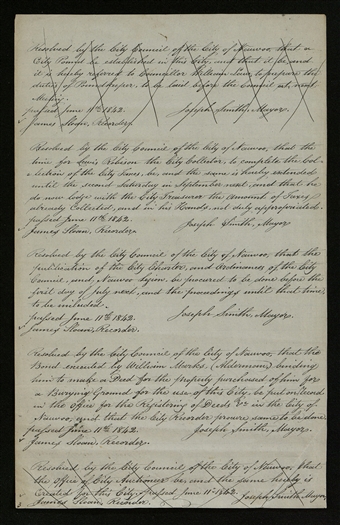 Resolved by the City Council of the City of Nauvoo, that a
City Pound be established in this City, and that it be, and
it is hereby referred to Councillor William Law, to prepare the
duties of Pound keeper, to be laid before the Council at next
Meeting.
passed June 11th 1842. Joseph Smith, Mayor.
James Sloan, Recorder.
Resolved by the City Council of the City of Nauvoo, that the
time for Lewis Robison the City Collector, to complete the Col-
lection of the City Taxes, be, and the same is hereby extended
until the second Saturday in September next, and that he
do now lodge with the City Treasurer the Amount of Taxes
already Collected, and in his Hands not duly appropriated.
passed June 11th 1842. Joseph Smith, Mayor
James Sloan, Recorder.
Resolved by the City Council of the City of Nauvoo, that the
publication of the City Charter, and Ordinances of the City
Council, and Nauvoo Legion, be procured to be done before the
first day of July next, and the proceedings until that time,
to be included.
passed June 11th 1842. Joseph Smith, Mayor.
James Sloan, Recorder.
Resolved by the City Council of the City of Nauvoo, that the
Bond executed by William Marks, (Alderman,) binding
him to make a Deed for the property purchased of him for
a Burying Ground for the use of this City, be put on record
in the Office for the Registering of Deeds &c in the City of
Nauvoo, and that the City Recorder procure same to be done
passed June 11th 1842. Joseph Smith, Mayor.
James Sloan, Recorder.
Resolved by the City Council of the City of Nauvoo, that
the Office of City Auctioneer be, and the same hereby is
Created for this City. passed June 11th 1842. Joseph Smith, Mayor
James Sloan, Recorder.